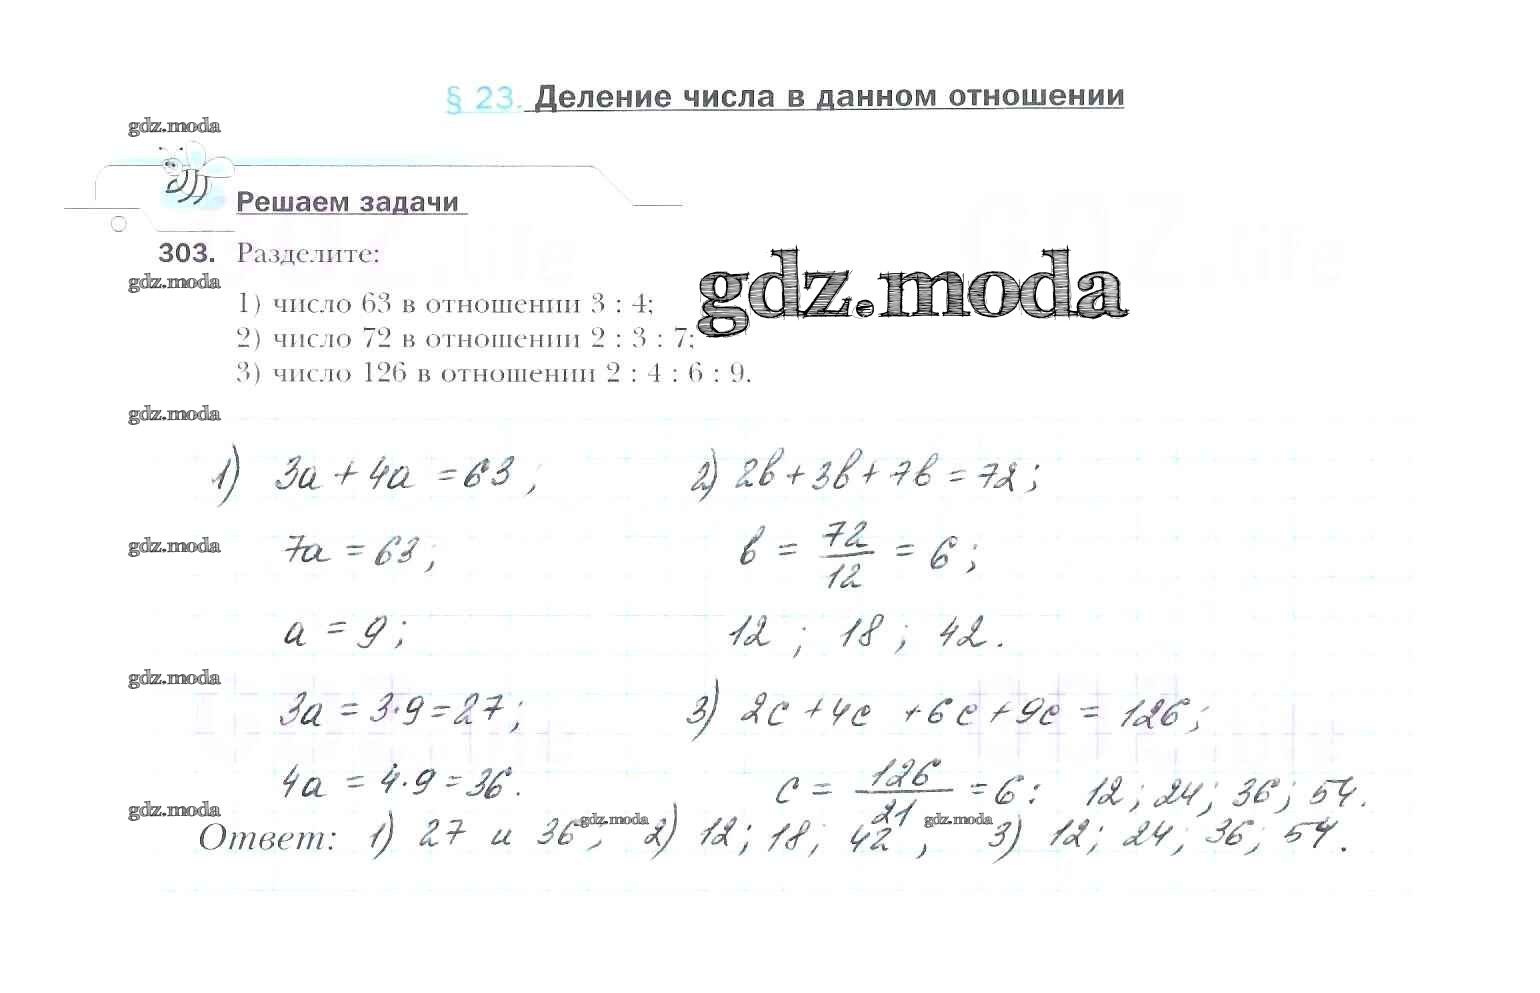 § 23. Деление числа в данном отношении
gdz.moda
Решаем задачи
303. Разделите:
gdz.moda
gdz.moda
1) число 63 в отношении 3 : 4;
2) число 72 в отношении 2 : 3 : 7;
3) число 126 в отношении 2 : 4 : 6 : 9.
gdz.moda
1) 3a + 4a = 63;
7a = 63;
a = 9;
3a = 3·9 = 27;
4a = 4·9 = 36.
2) 2b + 3b + 7b = 72;
b = 72/12 = 6;
12; 18; 42.
3) 2c + 4c + 6c + 9c = 126;
c = 126/21 = 6: 12; 24; 36; 54.
gdz.moda
gdz.moda
gdz.moda
gdz.moda
gdz.moda
Ответ: 1) 27 и 36; 2) 12; 18; 42; 3) 12; 24; 36; 54.